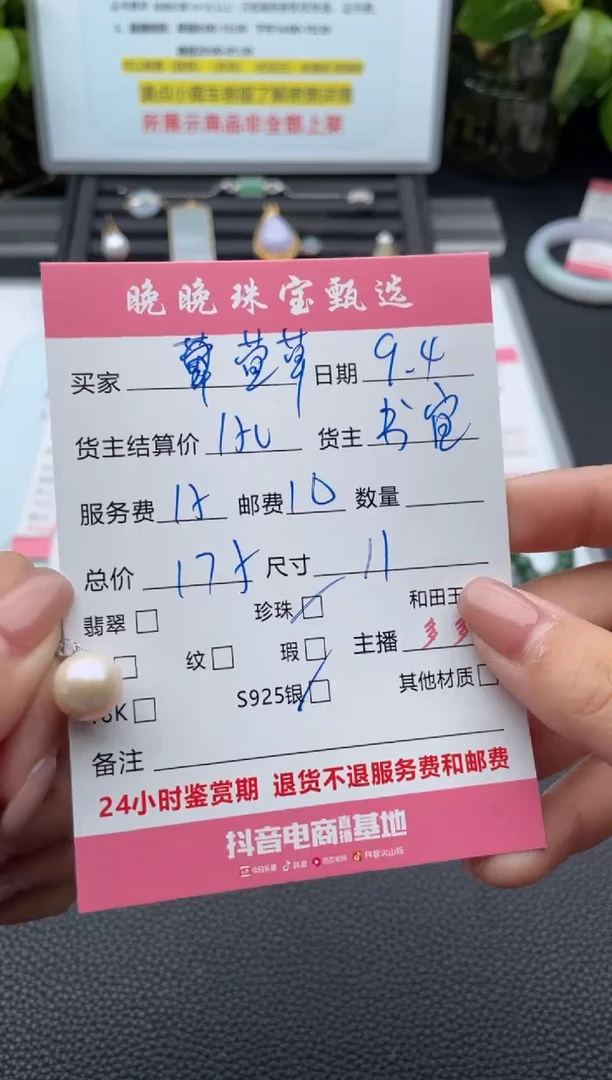 直点小黄车客服了解家售详情
所展示商品非全部上架
晚晚珠宝甄选
买家 日期 9.4
货主结算价 150 货主 书宜
服务费 15 邮费 10 数量
总价 175 尺寸 11
翡翠 珍珠 和田玉
纹 瑕 主播 多多
S925银 其他材质
备注
24小时鉴赏期 退货不退服务费和邮费
抖音电商直播基地
今日头条 抖音 西瓜视频 抖音火山版